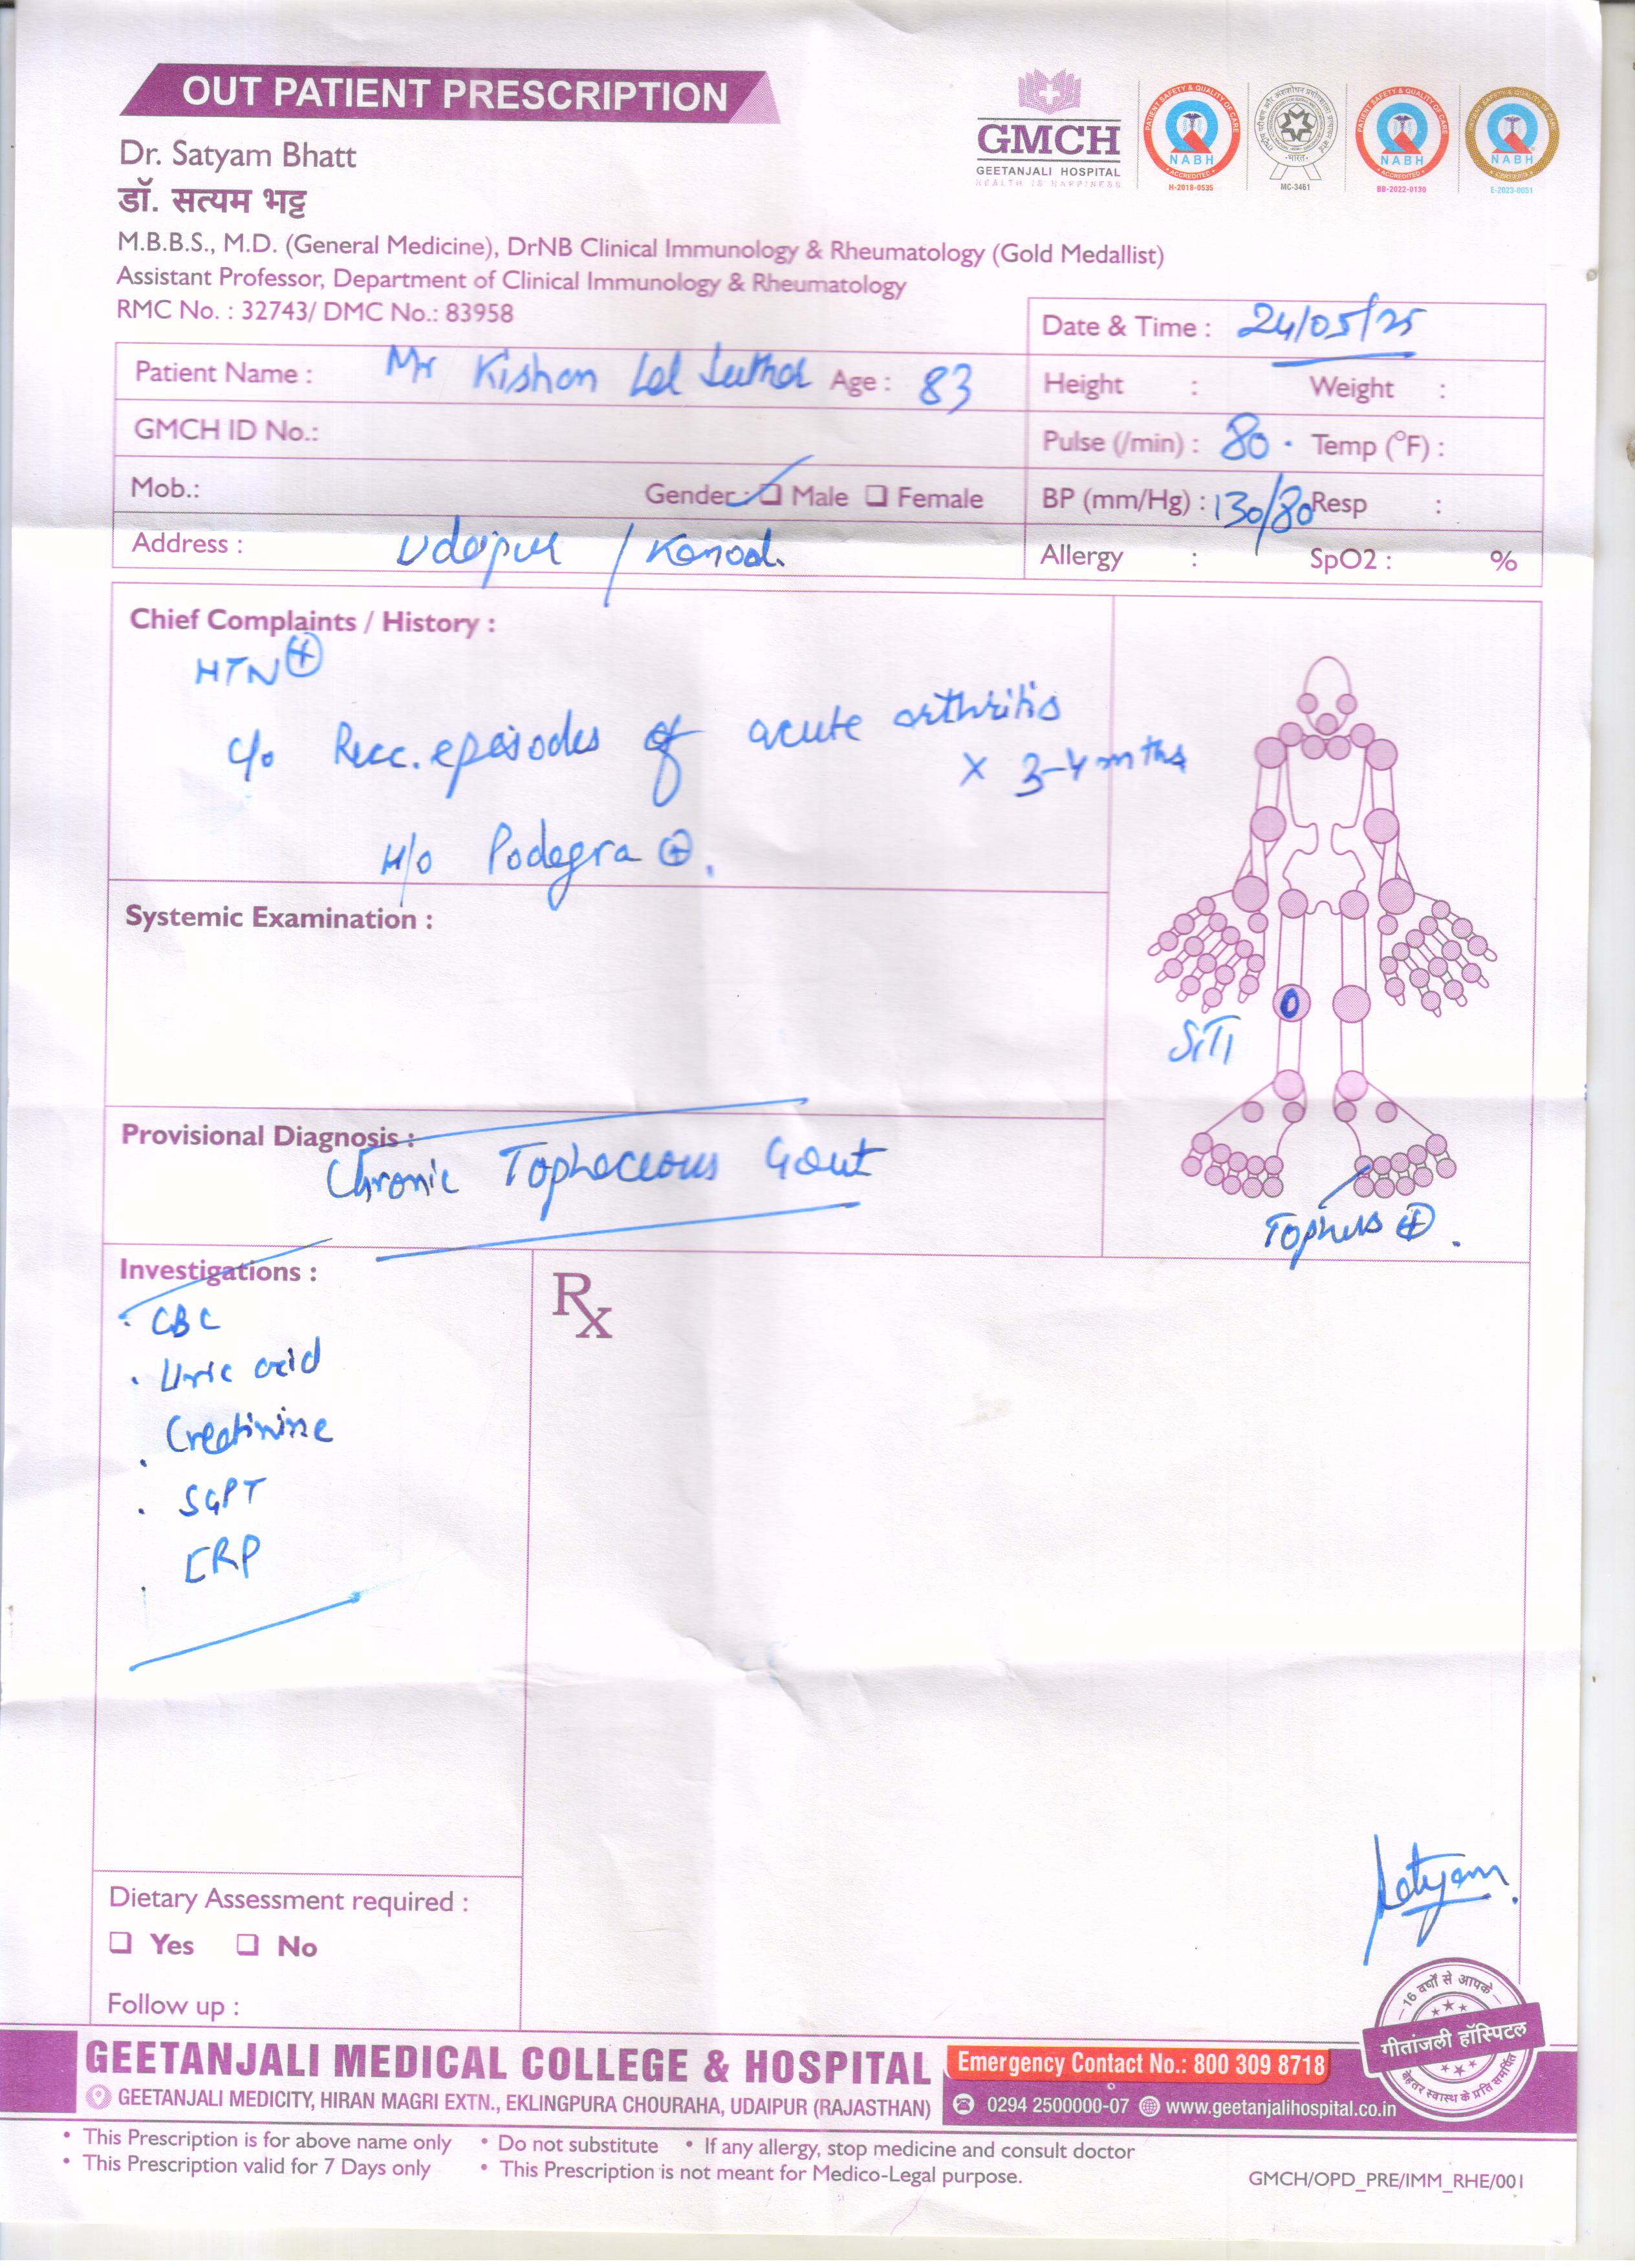 OUT PATIENT PRESCRIPTION
GMCH
GEETANJALI HOSPITAL
HEALTH IS HAPPINESS
PATIENT SAFETY & QUALITY OF CARE
NABH
ACCREDITED
H-2018-0535
भारत
MC-3461
PATIENT SAFETY & QUALITY OF CARE
NABH
ACCREDITED
BB-2022-0130
PATIENT SAFETY & QUALITY OF CARE
NABH
E-2023-0051
Dr. Satyam Bhatt
डॉ. सत्यम भट्ट
M.B.B.S., M.D. (General Medicine), DrNB Clinical Immunology & Rheumatology (Gold Medallist)
Assistant Professor, Department of Clinical Immunology & Rheumatology
RMC No. : 32743/ DMC No.: 83958
Date & Time : 24/05/25
Patient Name : Mr Kishan Lal Age : 83
Height : Weight :
GMCH ID No.:
Pulse (/min) : 80 . Temp (°F) :
Mob.: Gender : Male Female
BP (mm/Hg) : 130/80 Resp :
Address : Udaipur / Kanod.
Allergy : SpO2 : %
Chief Complaints / History :
HTN ⊕
c/o Recc. episodes of acute arthritis
x 3-4 mths
H/o Podagra ⊕.
Systemic Examination :
Provisional Diagnosis :
Chronic Tophaceous Gout
S1T1
Tophus ⊕.
Investigations :
. CBC
. Uric acid
. Creatinine
. SGPT
. CRP
Rx
Satyam.
Dietary Assessment required :
Yes No
Follow up :
16 वर्षों से आपके
गीतांजली हॉस्पिटल
बेहतर स्वास्थ के प्रति समर्पित
GEETANJALI MEDICAL COLLEGE & HOSPITAL
Emergency Contact No.: 800 309 8718
GEETANJALI MEDICITY, HIRAN MAGRI EXTN., EKLINGPURA CHOURAHA, UDAIPUR (RAJASTHAN)
0294 2500000-07 www.geetanjalihospital.co.in
• This Prescription is for above name only • Do not substitute • If any allergy, stop medicine and consult doctor
• This Prescription valid for 7 Days only • This Prescription is not meant for Medico-Legal purpose.
GMCH/OPD_PRE/IMM_RHE/001